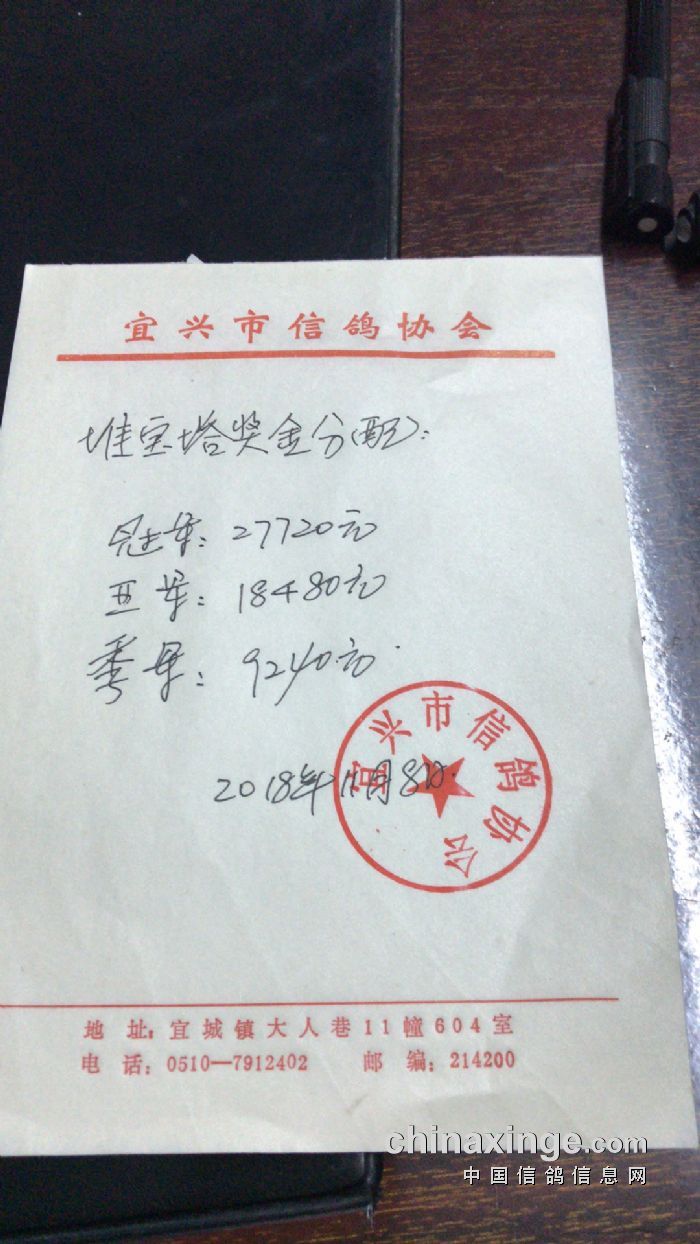 宜兴市信鸽协会
堆宝塔奖金分配:
冠军: 27720元
亚军: 18480元
季军: 9240元.
2018年11月8日.
宜兴市信鸽协会
地 址: 宜城镇大人巷11幢604室
电 话: 0510—7912402 邮 编: 214200
chinaxinge.com
中国信鸽信息网